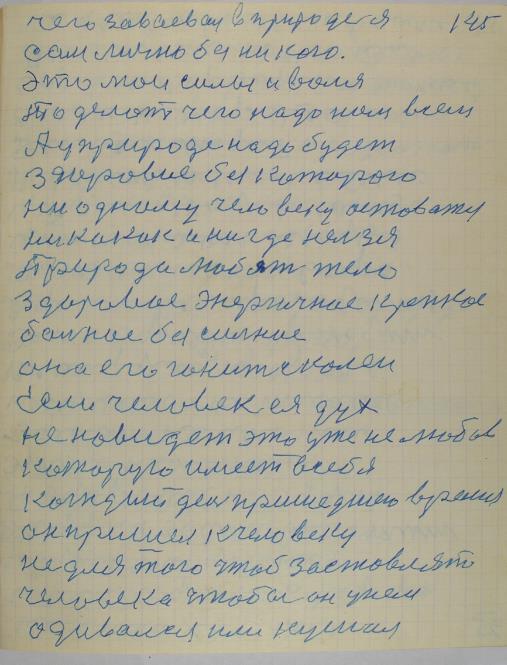 чего заваевал в природе я 145
сам лично без никого.
Это мои силы и воля
То делают чего надо нам всем
А у природе надо будет
здоровие без которого
ни одному человеку оставатся
никакак и нигде нельзя
Природа любит тело
здоровое энергичное крепкое
болное бессилное
она его гонит
Если человек ея дух
не новидет это уже не любов
которую имеет в себя
каждый ден пришедшего время
он пришел к человеку
не для того чтоб заставлят
человека чтобы он у нем
одивался или кушал